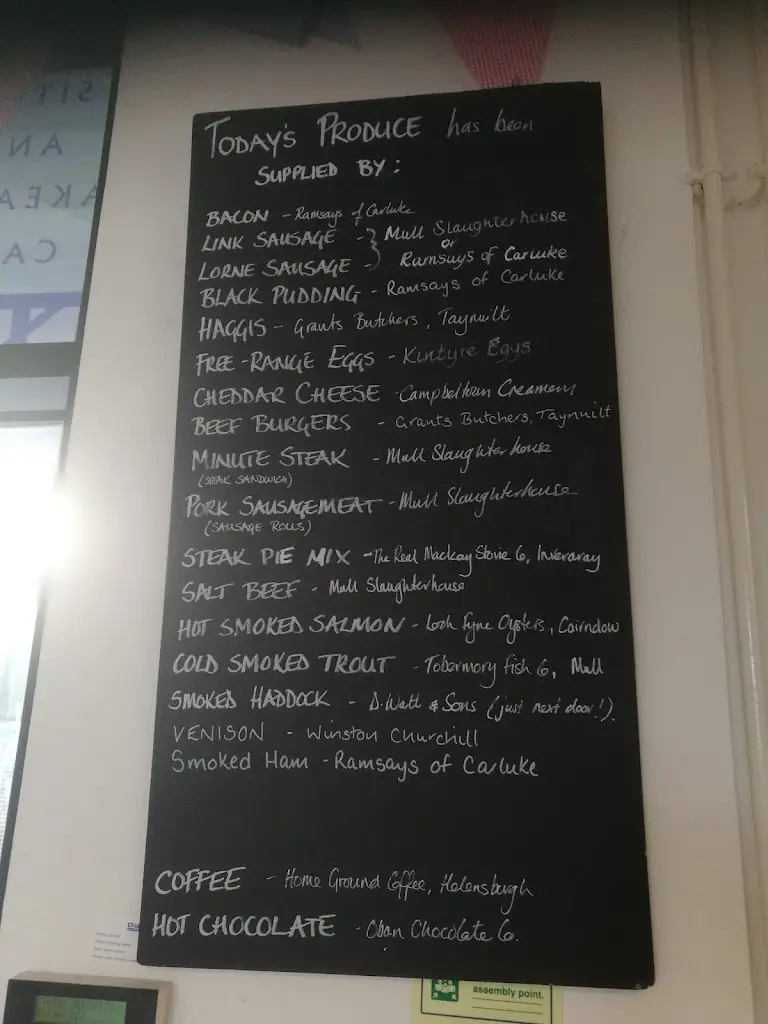 TODAY'S PRODUCE has been
SUPPLIED BY:
BACON - Ramsays of Carluke
LINK SAUSAGE - } Mull Slaughterhouse
or
LORNE SAUSAGE - } Ramsays of Carluke
BLACK PUDDING - Ramsays of Carluke
HAGGIS - Grants Butchers, Taynuilt
FREE-RANGE EGGS - Kintyre Eggs
CHEDDAR CHEESE - Campbeltown Creamery
BEEF BURGERS - Grants Butchers, Taynuilt
MINUTE STEAK - Mull Slaughterhouse
(STEAK SANDWICH)
PORK SAUSAGEMEAT - Mull Slaughterhouse
(SAUSAGE ROLLS)
STEAK PIE MIX - The Real Mackay Stovie Co, Inveraray
SALT BEEF - Mull Slaughterhouse
HOT SMOKED SALMON - Loch Fyne Oysters, Cairndow
COLD SMOKED TROUT - Tobermory Fish Co, Mull
SMOKED HADDOCK - D. Watt & Sons (just next door!).
VENISON - Winston Churchill
Smoked Ham - Ramsays of Carluke
COFFEE - Home Ground Coffee, Helensburgh
HOT CHOCOLATE - Oban Chocolate Co.
assembly point.
SIT
AN
AKEA
CA